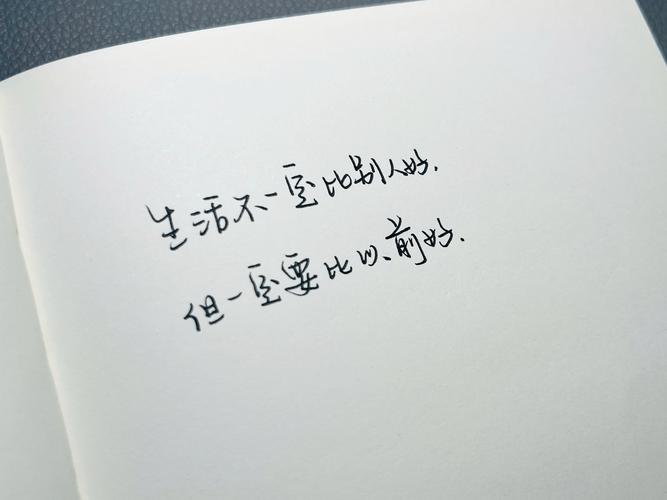 生活不一定比别人好.
但一定要比以前好.